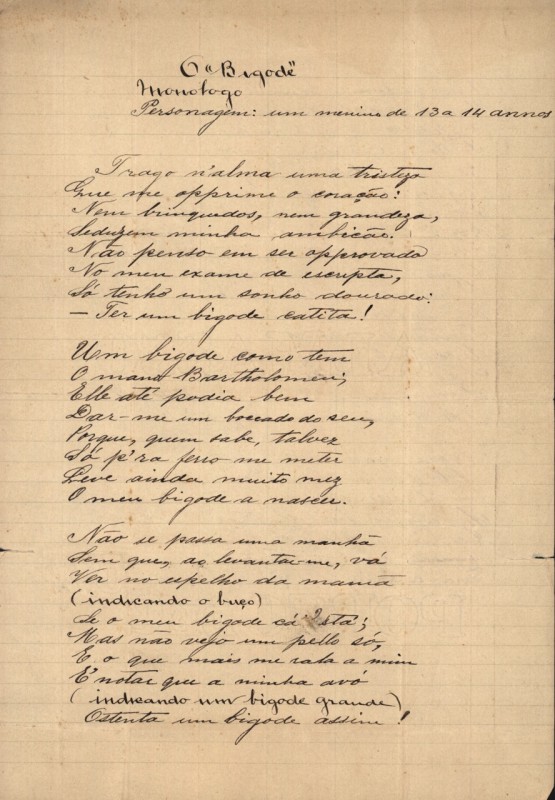 O "Bigode"
Monólogo
Personagem: um menino de 13 a 14 annos
Trago n'alma uma tristeza
Que me opprime o coração:
Nem brinquedos, nem grandeza,
Seduzem minha ambição.
Não penso em ser approvado
No meu exame de escripta,
Só tenho um sonho dourado:
— Ter um bigode catita!
Um bigode como tem
O mano Bartholomeu;
Elle até podia bem
Dar-me um boccado do seu,
Porque, quem sabe, talvez
Só p'ra ferro me meter
Leve ainda muito mez
O meu bigode a nascer.
Não se passa uma manhã
Sem que, ao levantar-me, vá
Ver no espelho da mamã
(indicando o buço)
Se o meu bigode cá 'stá;
Mas não vejo um pello só,
E o que mais me rala a mim
É notar que a minha avó
(indicando um bigode grande)
Ostenta um bigode assim!